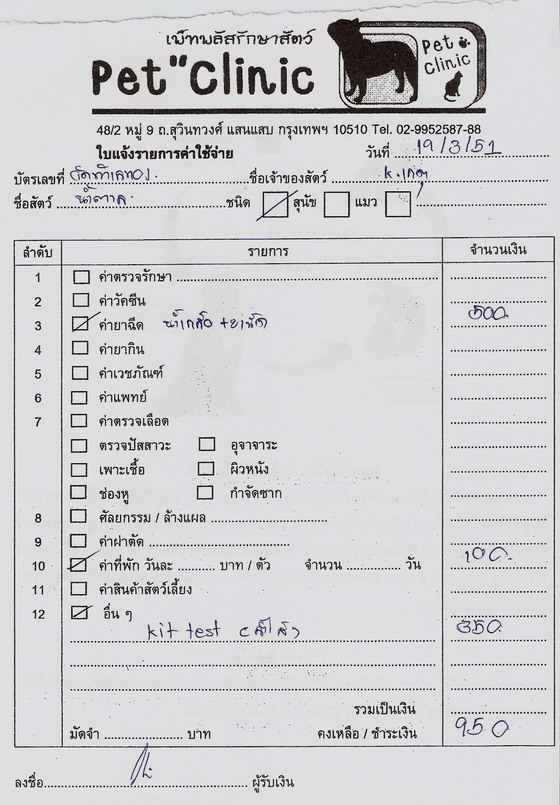 เพ็ทพลัสรักษาสัตว์
Pet"Clinic
Pet Clinic
48/2 หมู่ 9 ถ.สุวินทวงศ์ แสนแสบ กรุงเทพฯ 10510 Tel. 02-9952587-88
ใบแจ้งรายการค่าใช้จ่าย วันที่ 19/3/51
บัตรเลขที่ ชื่อเจ้าของสัตว์ K.
ชื่อสัตว์ น้ำตาล ชนิด สุนัข แมว
ลำดับ รายการ จำนวนเงิน
1 ค่าตรวจรักษา
2 ค่าวัคซีน
3 ค่ายาฉีด น้ำเกลือ +ยาฉีด 500
4 ค่ายากิน
5 ค่าเวชภัณฑ์
6 ค่าแพทย์
7 ค่าตรวจเลือด
ตรวจปัสสาวะ อุจาจาระ
เพาะเชื้อ ผิวหนัง
ช่องหู กำจัดซาก
8 ศัลยกรรม / ล้างแผล
9 ค่าฝาตัด
10 ค่าที่พัก วันละ บาท / ตัว จำนวน วัน 100
11 ค่าสินค้าสัตว์เลี้ยง
12 อื่น ๆ
kit test 350
รวมเป็นเงิน
มัดจำ บาท คงเหลือ / ชำระเงิน 950
ลงชื่อ ผู้รับเงิน